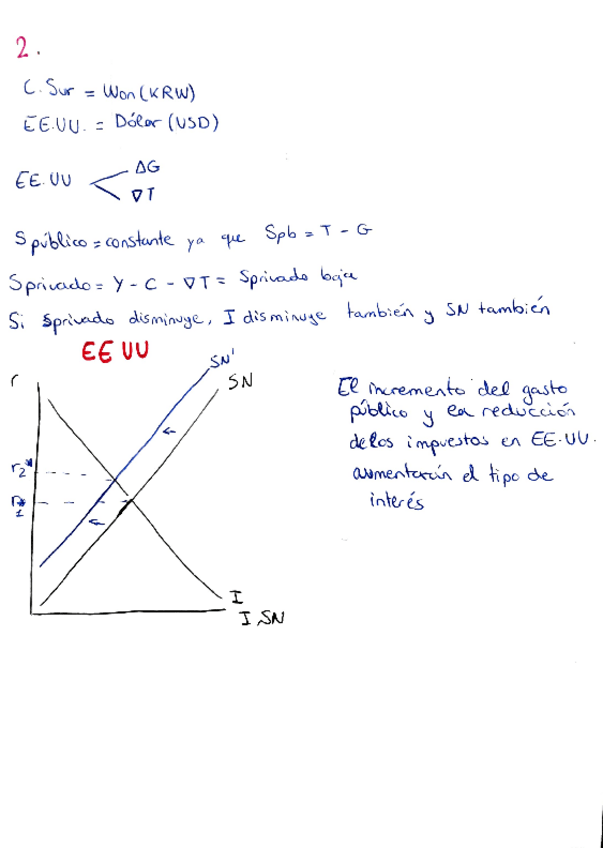 2.
C. Sur = Won (KRW)
EE.UU. = Dólar (USD)
EE.UU
ΔG
∇T
S público = constante ya que Spb = T - G
Sprivado = Y - C - ∇T = Sprivado baja
Si sprivado disminuye, I disminuye también y SN también
EE UU
r
SN'
SN
r2*
r*1
I
I SN
El incremento del gasto
público y la reducción
de los impuestos en EE.UU.
aumentarán el tipo de
interés